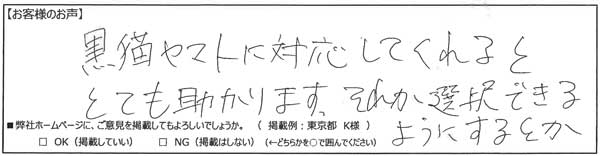 【お客様のお声】
黒猫ヤマトに対応してくれると
とても助かります。それか選択できる
ようにするとか
■弊社ホームページに、ご意見を掲載してもよろしいでしょうか。（ 掲載例：東京都 K様 ）
□ OK（掲載していい） □ NG（掲載はしない） （←どちらかを○で囲んでください）